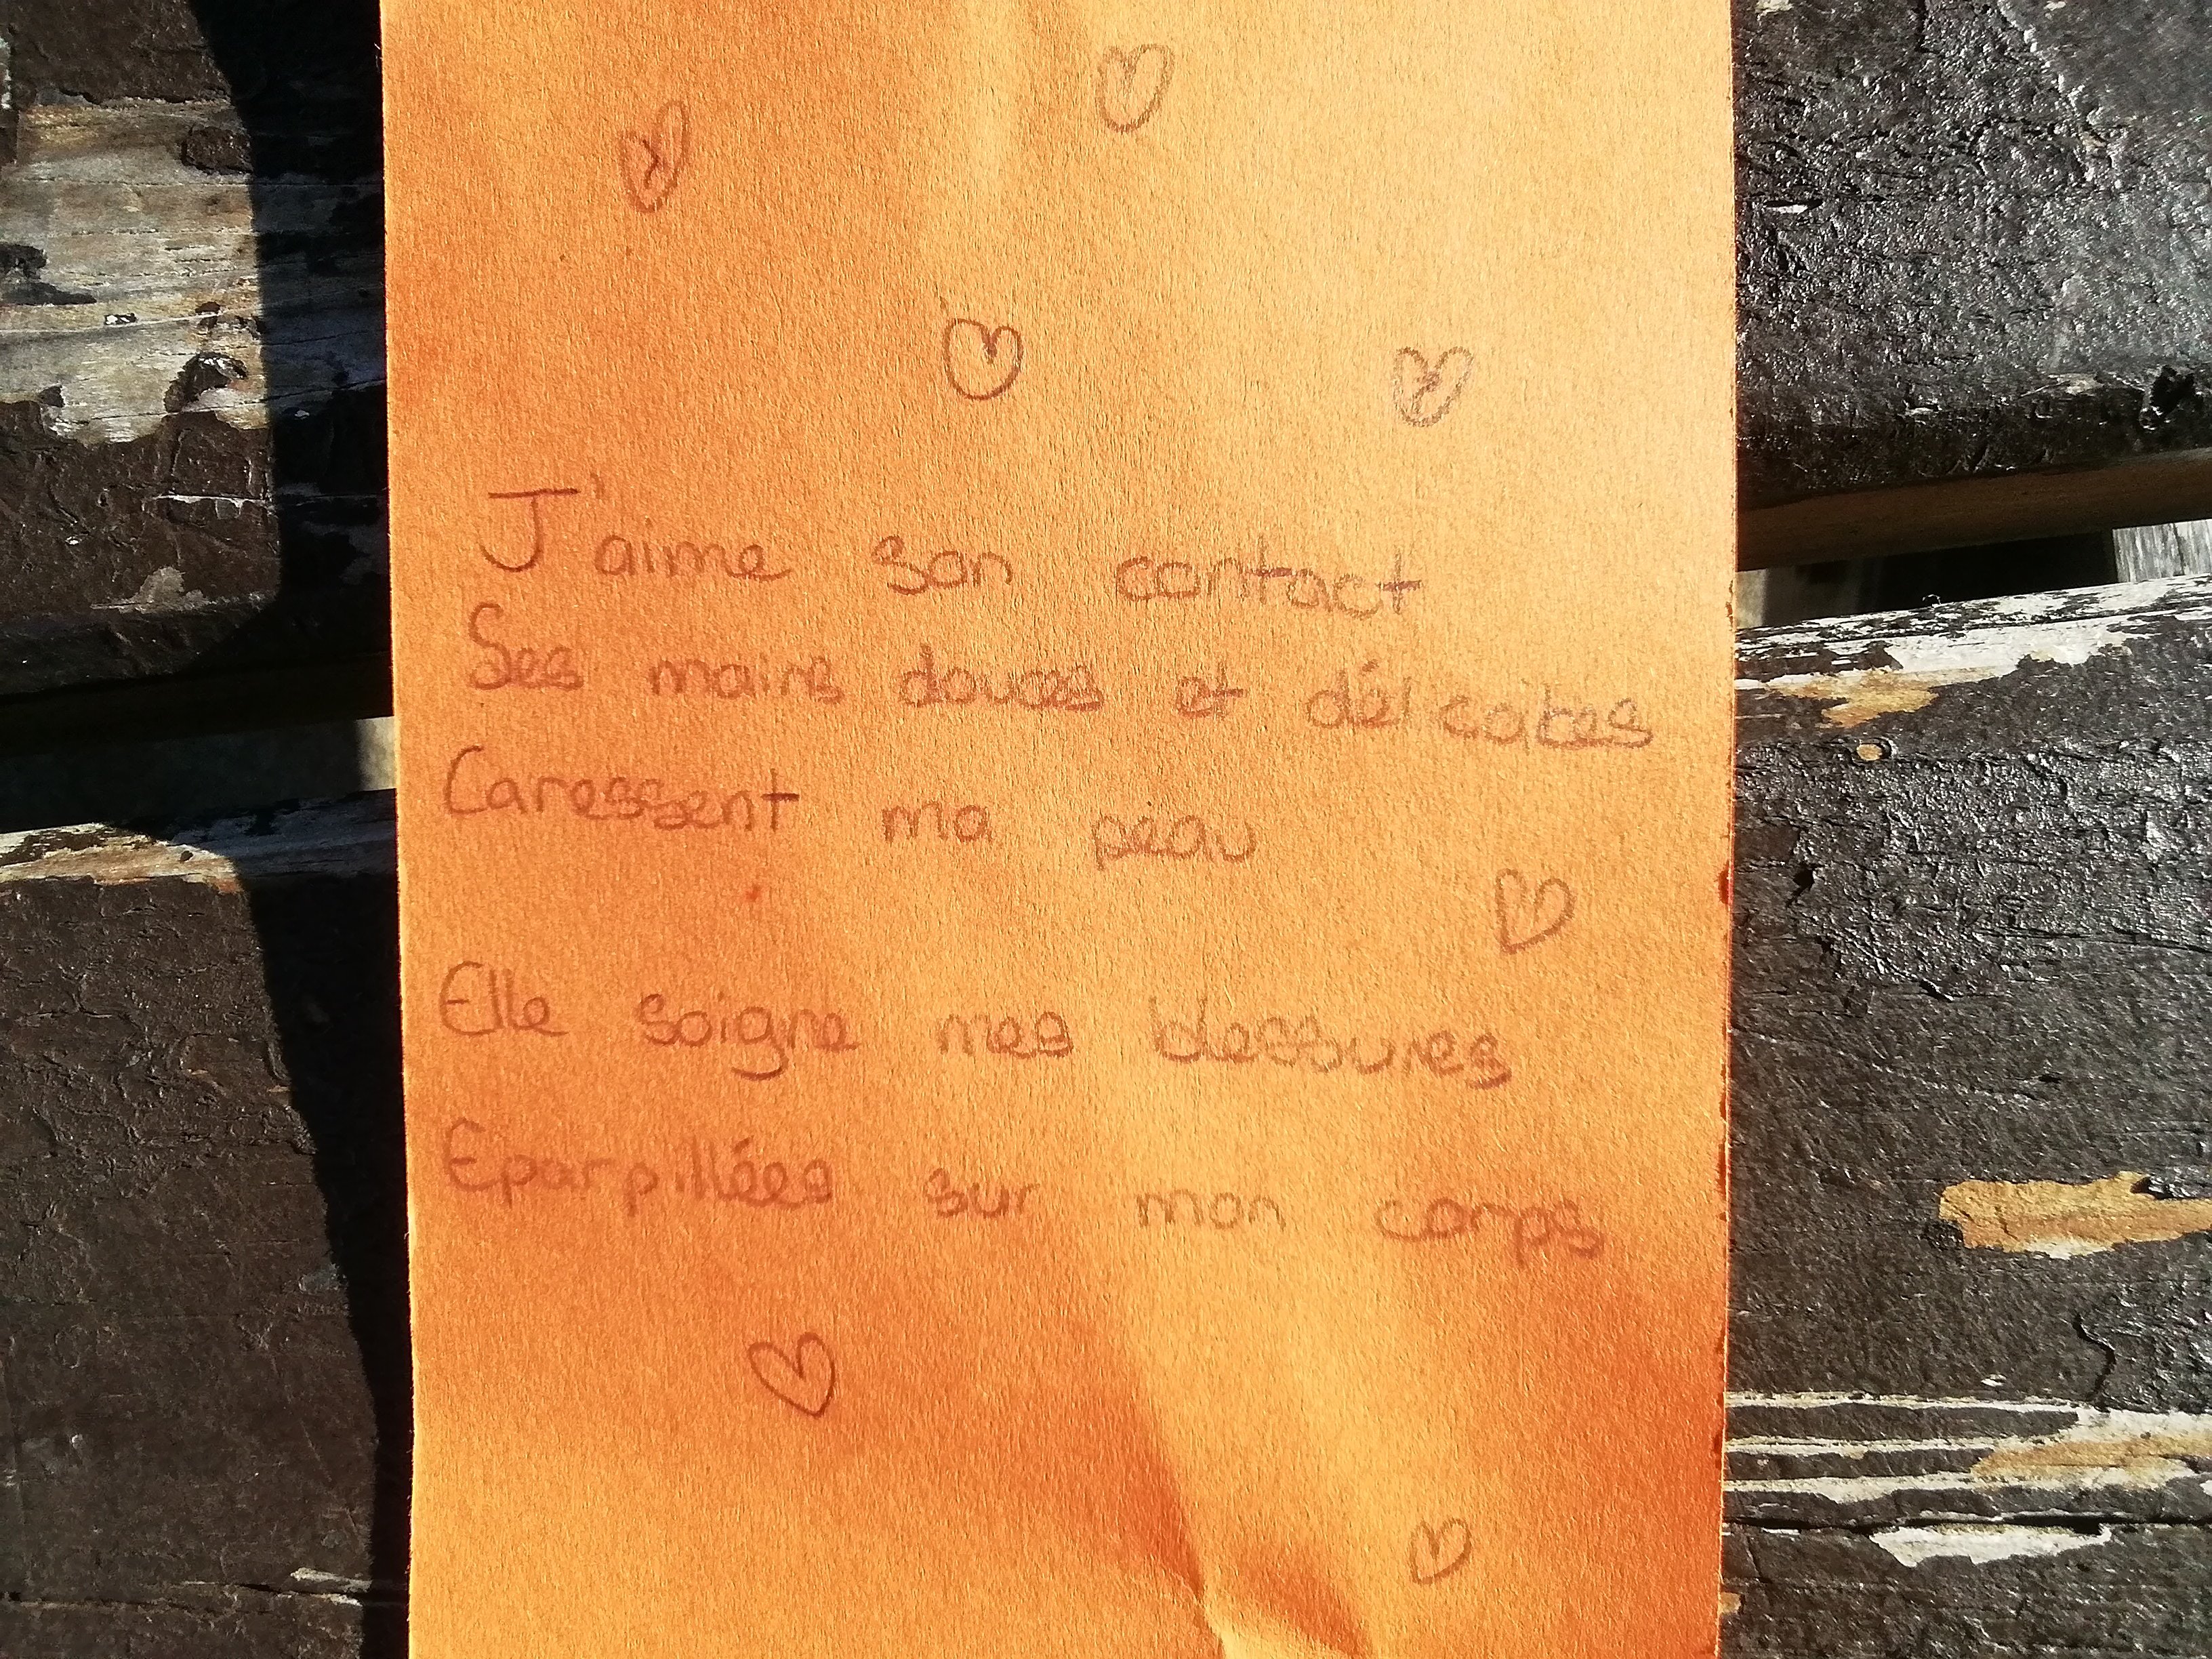 J'aime son contact
Ses mains douces et délicates
Caressent ma peau
Elle soigne mes blessures
Eparpillées sur mon corps